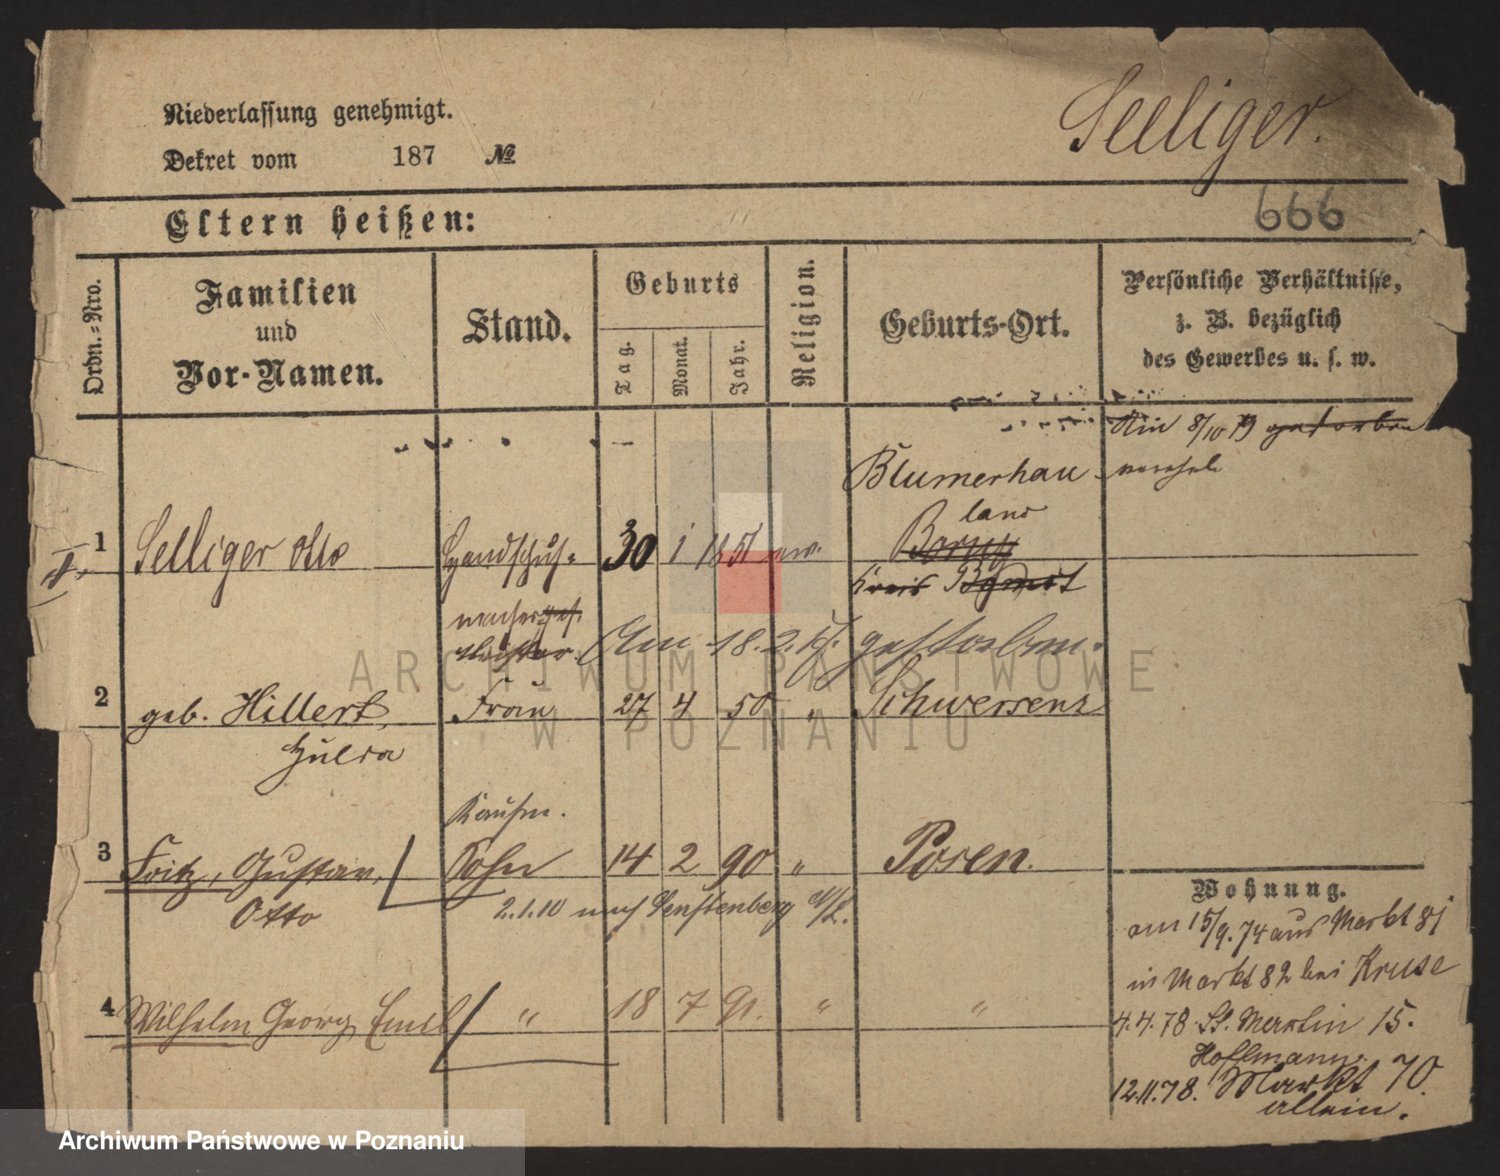 Niederlassung genehmigt.
Seeliger.
Dekret vom 187 №
Eltern heißen:
666
Ordn.=Nro.
Familien
und
Vor-Namen.
Stand.
Geburts
Tag.
Monat.
Jahr.
Religion.
Geburts-Ort.
Persönliche Verhältnisse,
z. B. bezüglich
des Gewerbes u. s. w.
8/10 79
Blumerhau
land
1 Selliger Otto Handschuh= 30 1 1851 ev. Borny
Kreis Bomst
macher
Am 18.2. gestorben.
2 geb. Hillert, Frau 27 4 50 " Schwersenz
Hulda
Kaufm.
3 Fritz, Gustav, Sohn 14 2 90 " Posen.
Otto
2.1.10 nach Senftenberg
4 Wilhelm Georg Emil " 18 7 91. " "
Wohnung.
am 15/9.74 aus Markt 81
in Markt 82 bei Kruse
4.4.78 St. Martin 15.
Hoffmann.
12.11.78. Markt 70.
allein.
ARCHIWUM PAŃSTWOWE
W POZNANIU
Archiwum Państwowe w Poznaniu